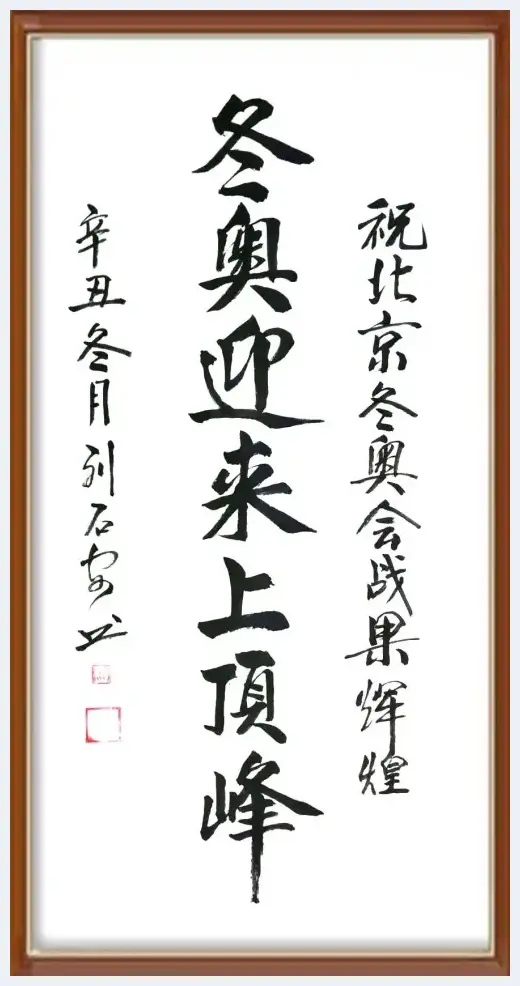 祝北京冬奥会战果辉煌
冬奥迎来上頂峰
辛丑冬月刘石安书